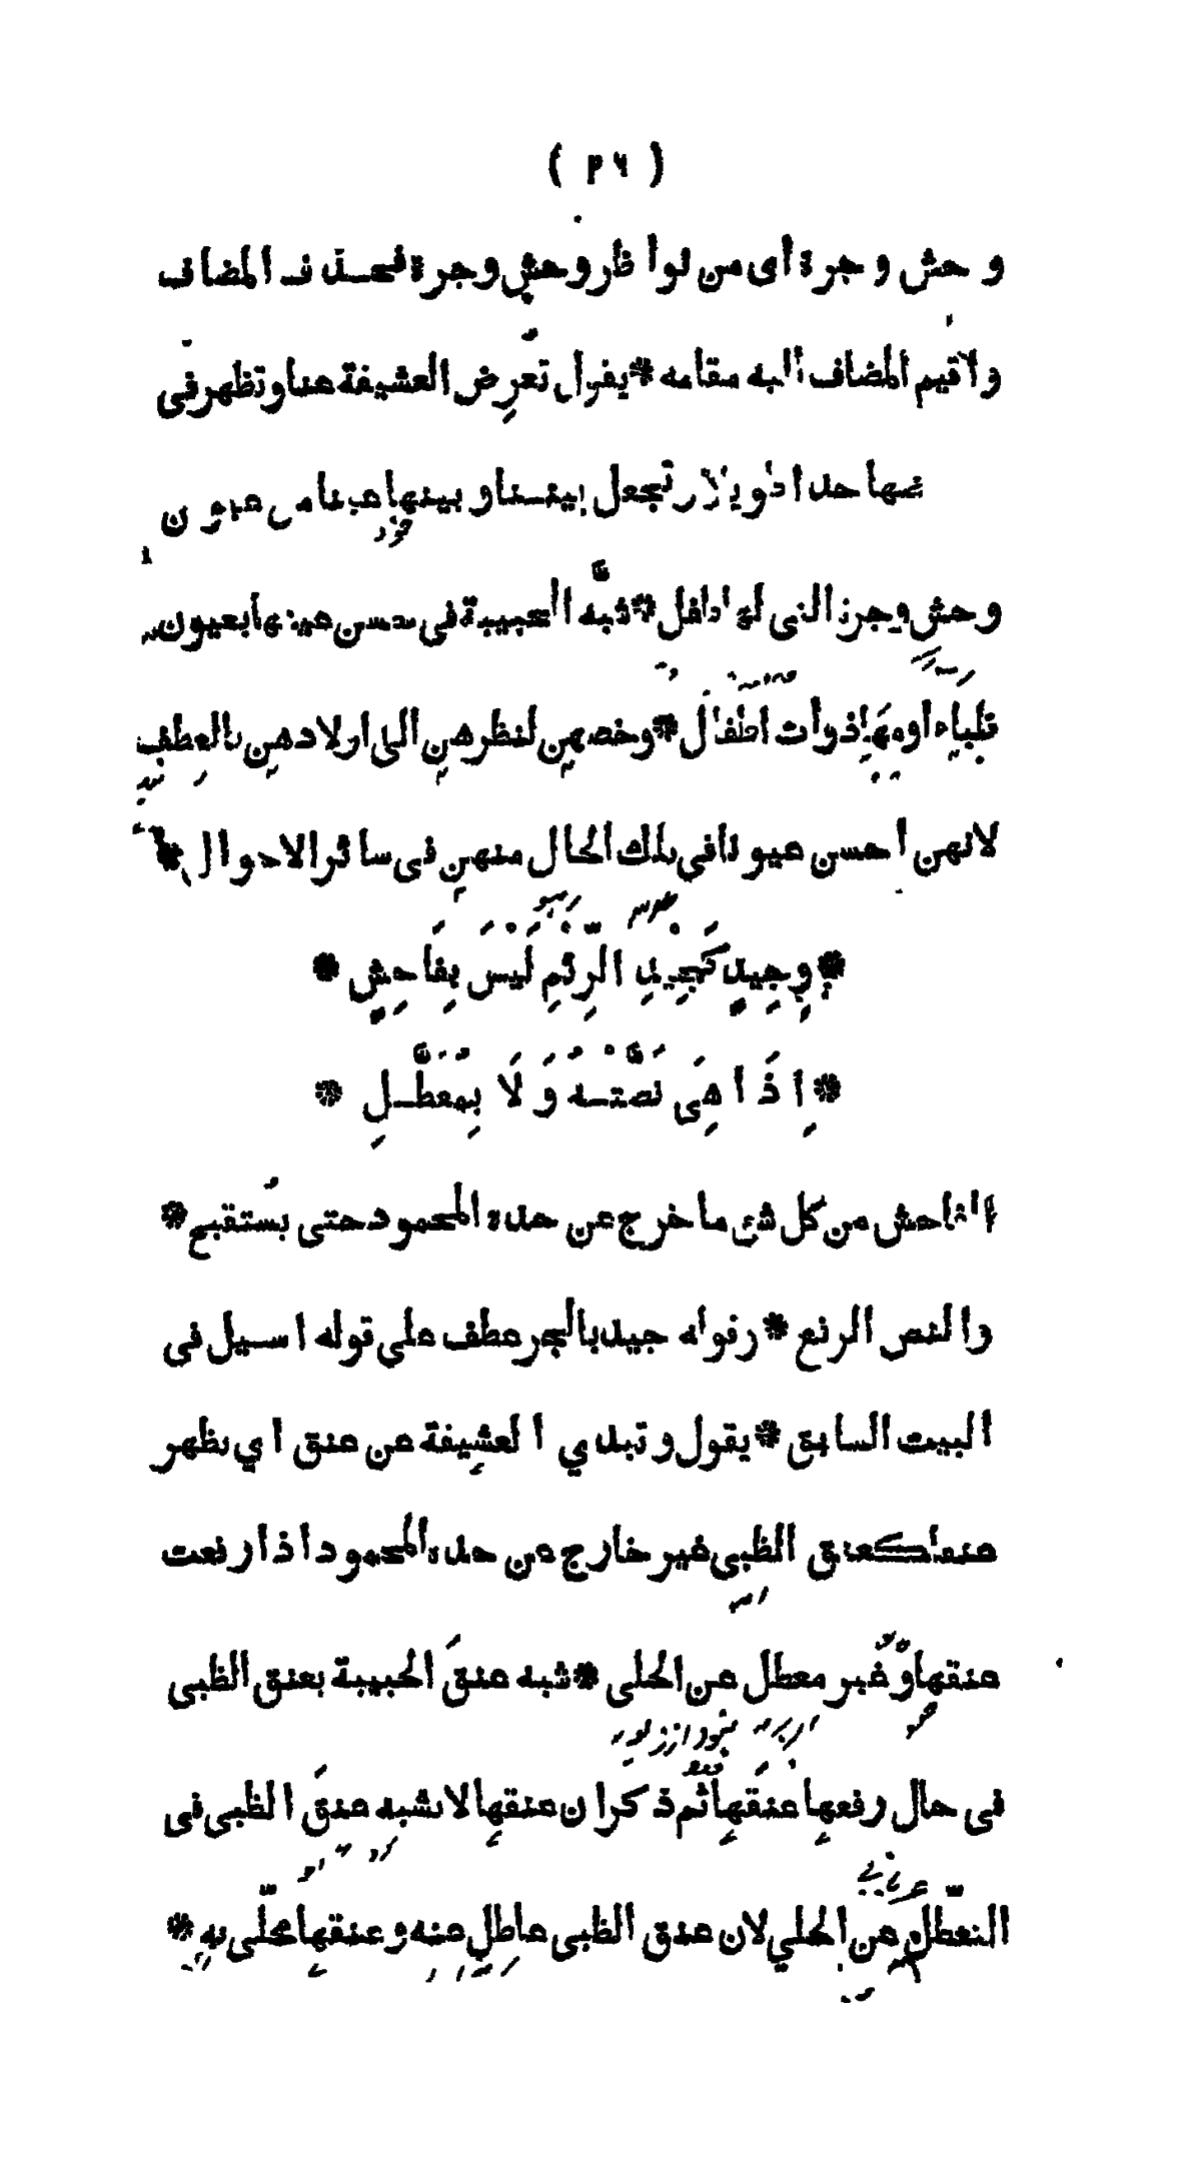 ( ٣٦ )
وحش وجرة أى من نواظر وحش وجرة فحذف المضاف
واقيم المضاف اليه مقامه * يقول تعرض العشيقة عنا وتظهر فى
بيننا وبينها عينا من عيون
وحش وجرة التى لها اطفل * شبّه الحبيبة فى حسن عينها بعيون
ظباء أو مهاٍ ذوات اطفال * وخصهن لنظرهن الى اولادهن بالعطف
لانهن أحسن عيونا فى تلك الحال منهن فى سائر الاحوال *
* وَجِيدٍ كَجِيْدِ الرِّئْمِ لَيْسَ بِفَاحِشٍ *
* اِذَا هِىَ نَصَّتْهُ وَلَا بِمُعَطَّلِ *
الفاحش من كل شئ ما خرج عن حده المحمود حتى يُستقبح *
والنص الرفع * وقوله جيد بالجر عطف على قوله اسيل فى
البيت السابق * يقول وتبدي العشيقة عن عنق اي تظهر
عنقا كعنق الظبى غير خارج عن حده المحمود اذا رفعت
عنقها وّغير معطل عن الحلى * شبه عنقَ الحبيبة بعنق الظبى
فى حال رفعها عنقها ثم ذكر ان عنقها لا يشبه عنقَ الظبى فى
التعطّل عن الحلي لان عنق الظبى عاطل عنه وعنقها محلّى به *